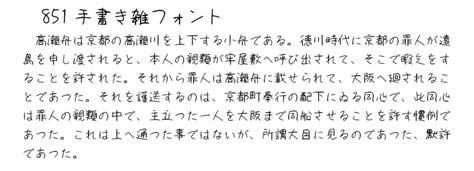 851手書き雑フォント
高瀬舟は京都の高瀬川を上下する小舟である。徳川時代に京都の罪人が遠
島を申し渡されると、本人の親類が牢屋敷へ呼び出されて、そこで暇乞をす
ることを許された。それから罪人は高瀬舟に載せられて、大阪へ廻されるこ
とであった。それを護送するのは、京都町奉行の配下にゐる同心で、此同心
は罪人の親類の中で、主立った一人を大阪まで同船させることを許す慣例で
あった。これは上へ通った事ではないが、所謂大目に見るのであった、黙許
であった。